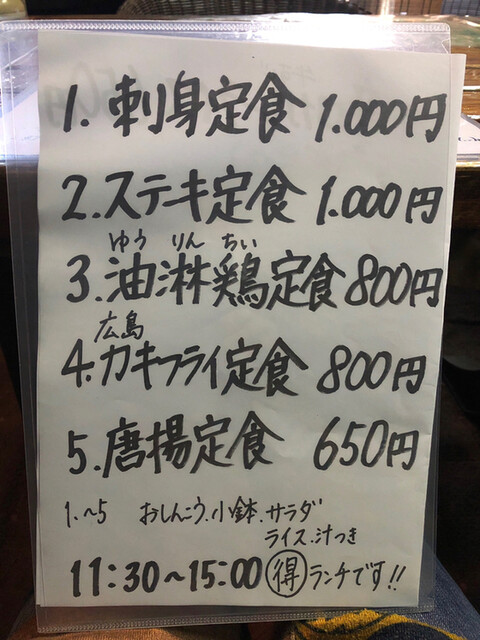 1. 刺身定食 1.000円
2. ステキ定食 1.000円
ゆう りん ちい
3. 油淋鶏定食 800円
広島
4. カキフライ定食 800円
5. 唐揚定食 650円
1.~5 おしんこう.小鉢.サラダ
ライス.汁つき
11:30~15:00 得 ランチです!!